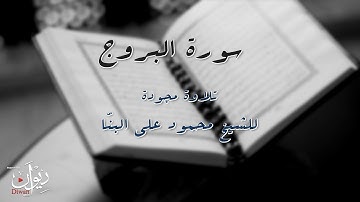 سورة البروج
تلاوة مجودة
للشيخ محمود على البنّا
ديوان
Diwan